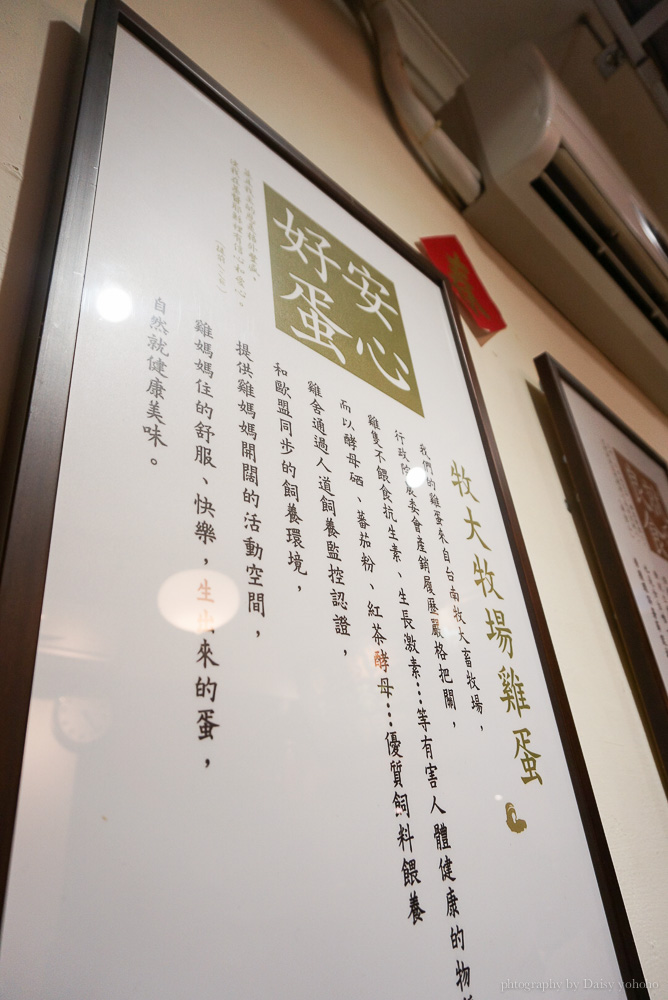 牧大牧場雞蛋
我們的雞蛋來自台南牧大畜牧場，
行政院農委會產銷履歷嚴格把關，
雞隻不餵食抗生素、生長激素…等有害人體健康的物
而以酵母硒、蕃茄粉、紅茶酵母…優質飼料餵養
雞舍通過人道飼養監控認證，
和歐盟同步的飼養環境，
提供雞媽媽開闊的活動空間，
雞媽媽住的舒服、快樂，生出來的蛋，
自然就健康美味。
安心
好蛋
photography by Daisy yohoho